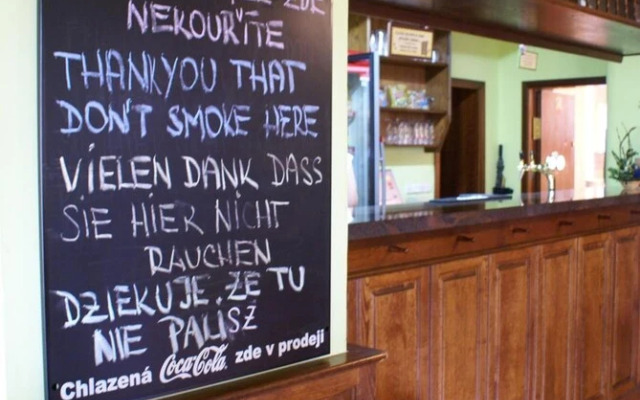 ZDE
NEKOUŘÍTE
THANKYOU THAT
DON'T SMOKE HERE
VIELEN DANK DASS
SIE HIER NICHT
RAUCHEN
DZIEKUJE, ŻE TU
NIE PALISZ
Chlazená Coca-Cola zde v prodeji